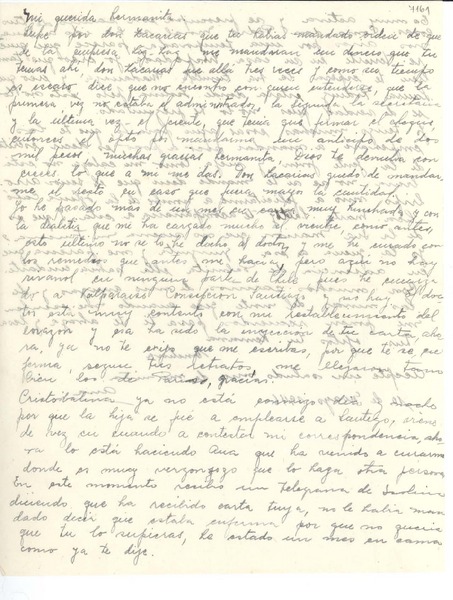 1169
Mi querida hermanita
Supe por don Zacarías que tu habías mandado orden de que
de la puse me mandaran un dinero que tu
tenías ahí, don Zacarías fue allá tres veces y como su tiempo
es escaso dice que no encontró con quien entenderse, que la
primera vez no estaba el administrador, la segunda la secretaria
y la ultima vez el gerente que tenía que firmar el cheque
entonces el optó por mandarme un anticipo de dos
mil pesos muchas gracias hermanita Dios te devuelva con
creces lo que a mi me das. Don Zacarías quedó de mandar
me el resto en caso que fuera mayor la cantidad.
Yo he pasado mas de un mes en cama muy hinchada y con
la diabetis que me ha cargado mucho al vientre como antes,
esto ultimo no se lo he dicho al doctor y me he curado con
los remedios que antes me hacía, pero aquí no hay
en ninguna parte de Chile pues he encarga
do a Valparaiso Concepción Santiago y no hay. El doc
tor está muy contento con mi restablecimiento del
corazón y esa ha sido la de tu carta, aho
ra, ya no te exijo que me escribas, por que te se en
ferma, tres retratos me llegaron tomo
bien los gracias.
Cristobalina ya no está conmigo
por que la hija se fué a emplearse a Santiago, viene
de vez en cuando a contestar mi correspondencia, aho
ra lo está haciendo Ana que ha venido a curarme
donde es muy vergonzoso que lo haga otra persona
En este momento recibo un Telegrama de
diciendo que ha recibido carta tuya, no le había man
dado decir que estaba enferma por que no quería
que tu lo supieras, he estado un mes en cama
como ya te dije.